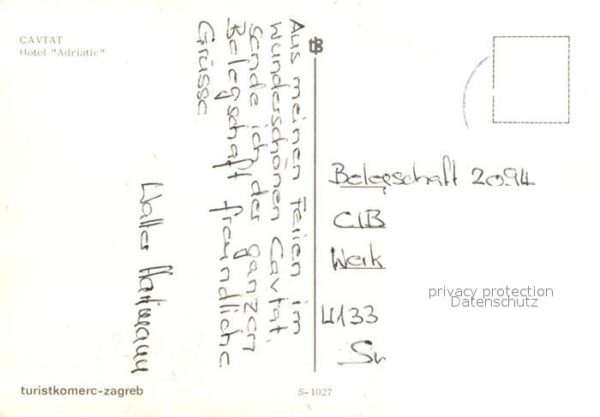 CAVTAT
Hotel "Adriatic"
Aus meinen Ferien im
wunderschönen Cavtat,
sende ich der ganzen
Belegschaft freundliche
Grüsse
Walter Hartmann
Belegschaft 2094
CIB
Werk
4133
privacy protection
Datenschutz
turistkomerc-zagreb
S-1027